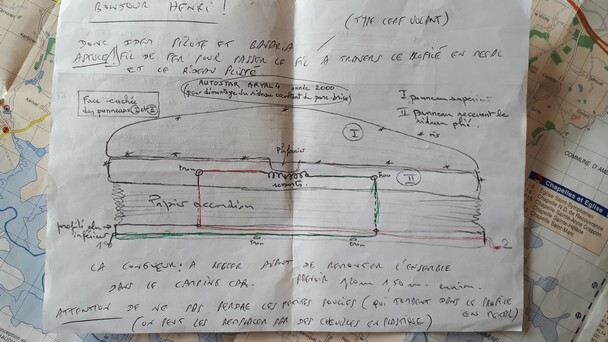 BONJOUR HENRI !
(TYPE CERF VOLANT)
DONC IDEM PILOTE ET BAVARIA
ASTUCE FIL DE FER POUR PASSER LE FIL A TRAVERS LE PROFILÉ EN DECAL
ET LE RIDEAU PLISSÉ
AUTOSTAR ARYAL 4 année 2000
(pour démontage du rideau occultant du pare-brise)
Face cachée
des panneaux I et II
I panneau
II panneau recevant le
rideau plié.
vis
I
ressorts
II
Papier accordéon
profilé alu
inférieur
1
2
LA LONGUEUR : A REGLER AVANT DE REMONTER L'ENSEMBLE
DANS LE CAMPING CAR. PREVOIR 1,50 m. environ.
ATTENTION DE NE PAS PERDRE LES PETITES POULIES (QUI TOMBENT DANS LE PROFILÉ
EN METAL)
(ON PEUT LES REMPLACER PAR DES CHEVILLES EN PLASTIQUE)
Chapelles et Eglise